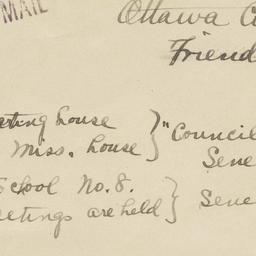 MAIL
Ottawa
Friend
eting house } "Council
Miss. house } Sene
School No. 8. } Sene
eetings are held